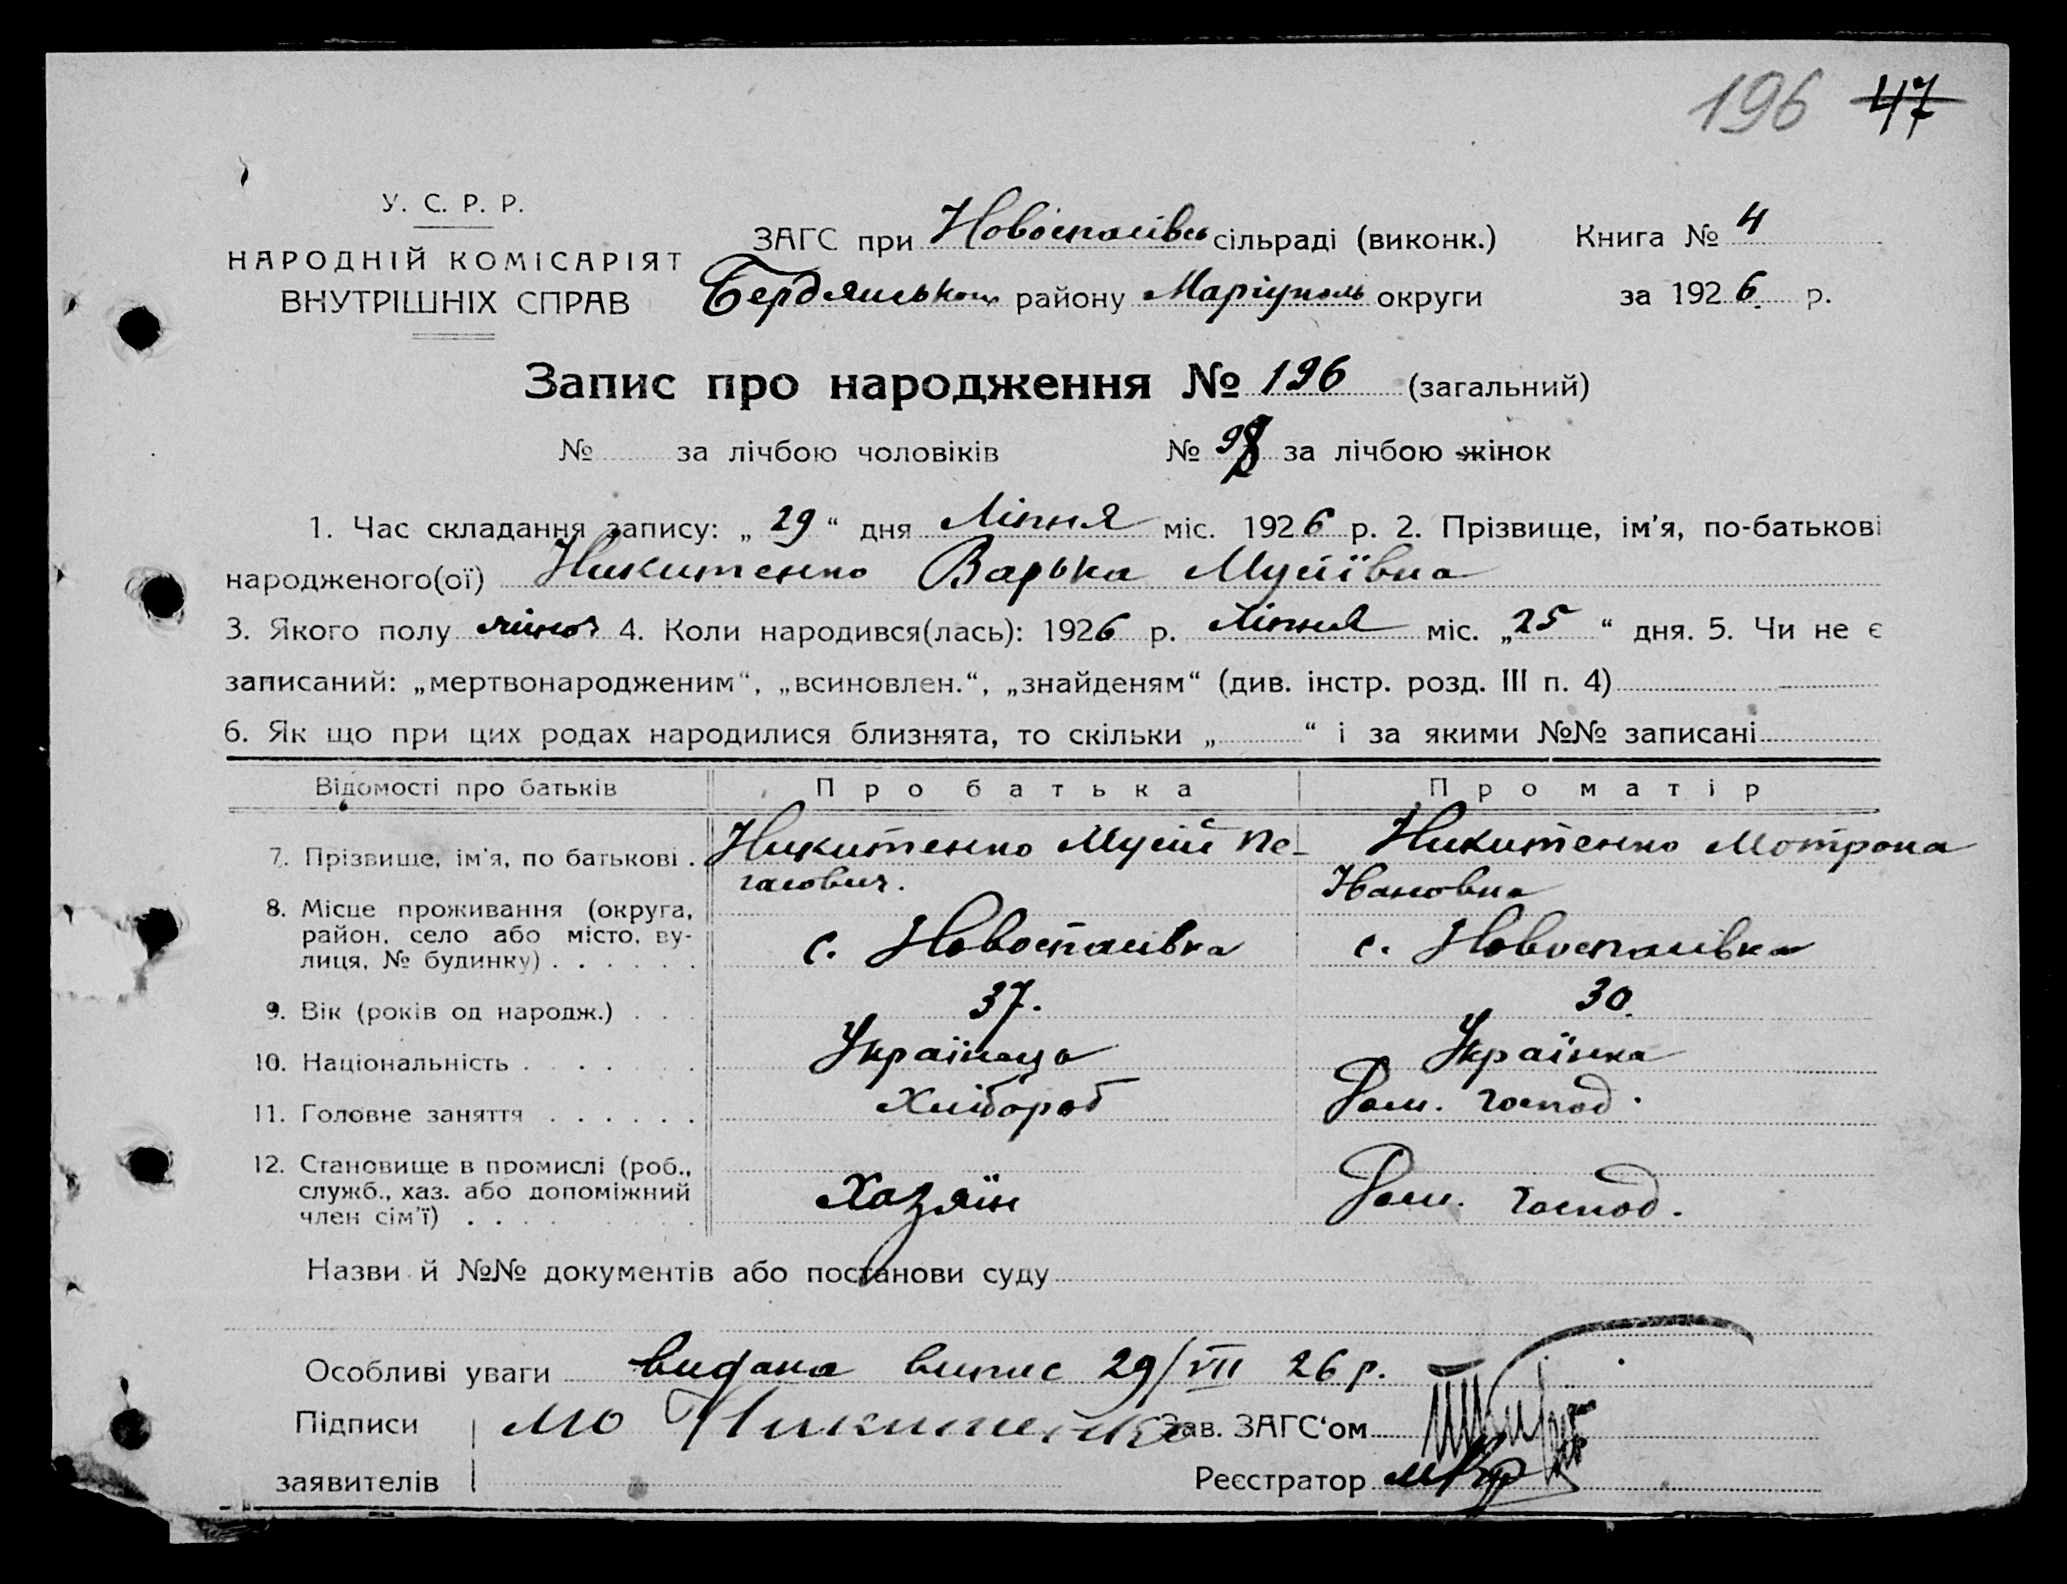 196 47
У. С. Р. Р.
НАРОДНІЙ КОМІСАРІЯТ
ВНУТРІШНІХ СПРАВ
ЗАГС при Новоспасівсь сільраді (виконк.) Книга № 4
Бердянського району Маріуполь округи за 1926 р.
Запис про народження № 196 (загальний)
№ за лічбою чоловіків № 98 за лічбою жінок
1. Час складання запису: „ 29 “ дня Ліпня міс. 1926 р. 2. Прізвище, ім'я, по-батькові
народженого(ої) Никитенко Варька Мусіївна
3. Якого полу жіноч 4. Коли народився(лась): 1926 р. Ліпня міс. „25 “ дня. 5. Чи не є
записаний: „мертвонародженим“, „всиновлен.“, „знайденям“ (див. інстр. розд. III п. 4)
6. Як що при цих родах народилися близнята, то скільки „ “ і за якими №№ записані
Відомості про батьків Про батька Про матір
7. Прізвище, ім'я, по батькові . Никитенко Мусій Никитенко Мотрона
Ивановна
8. Місце проживання (округа,
район, село або місто, ву-
лиця, № будинку) . . . . . . с. Новоспасівка с. Новоспасівка
9. Вік (років од народж.) . . . 37. 30.
10. Національність . . . . . . . Українець Українка
11. Головне заняття . . . . . . Хлібороб Дом. господ.
12. Становище в промислі (роб.,
служб., хаз. або допоміжний
член сім'ї) . . . . Хазяїн Дом. господ.
Назви й №№ документів або постанови суду
Особливі уваги видана випис 29/VII 26 р.
Підписи МО Никитенко Зав. ЗАГС‘ом
заявителів Реєстратор